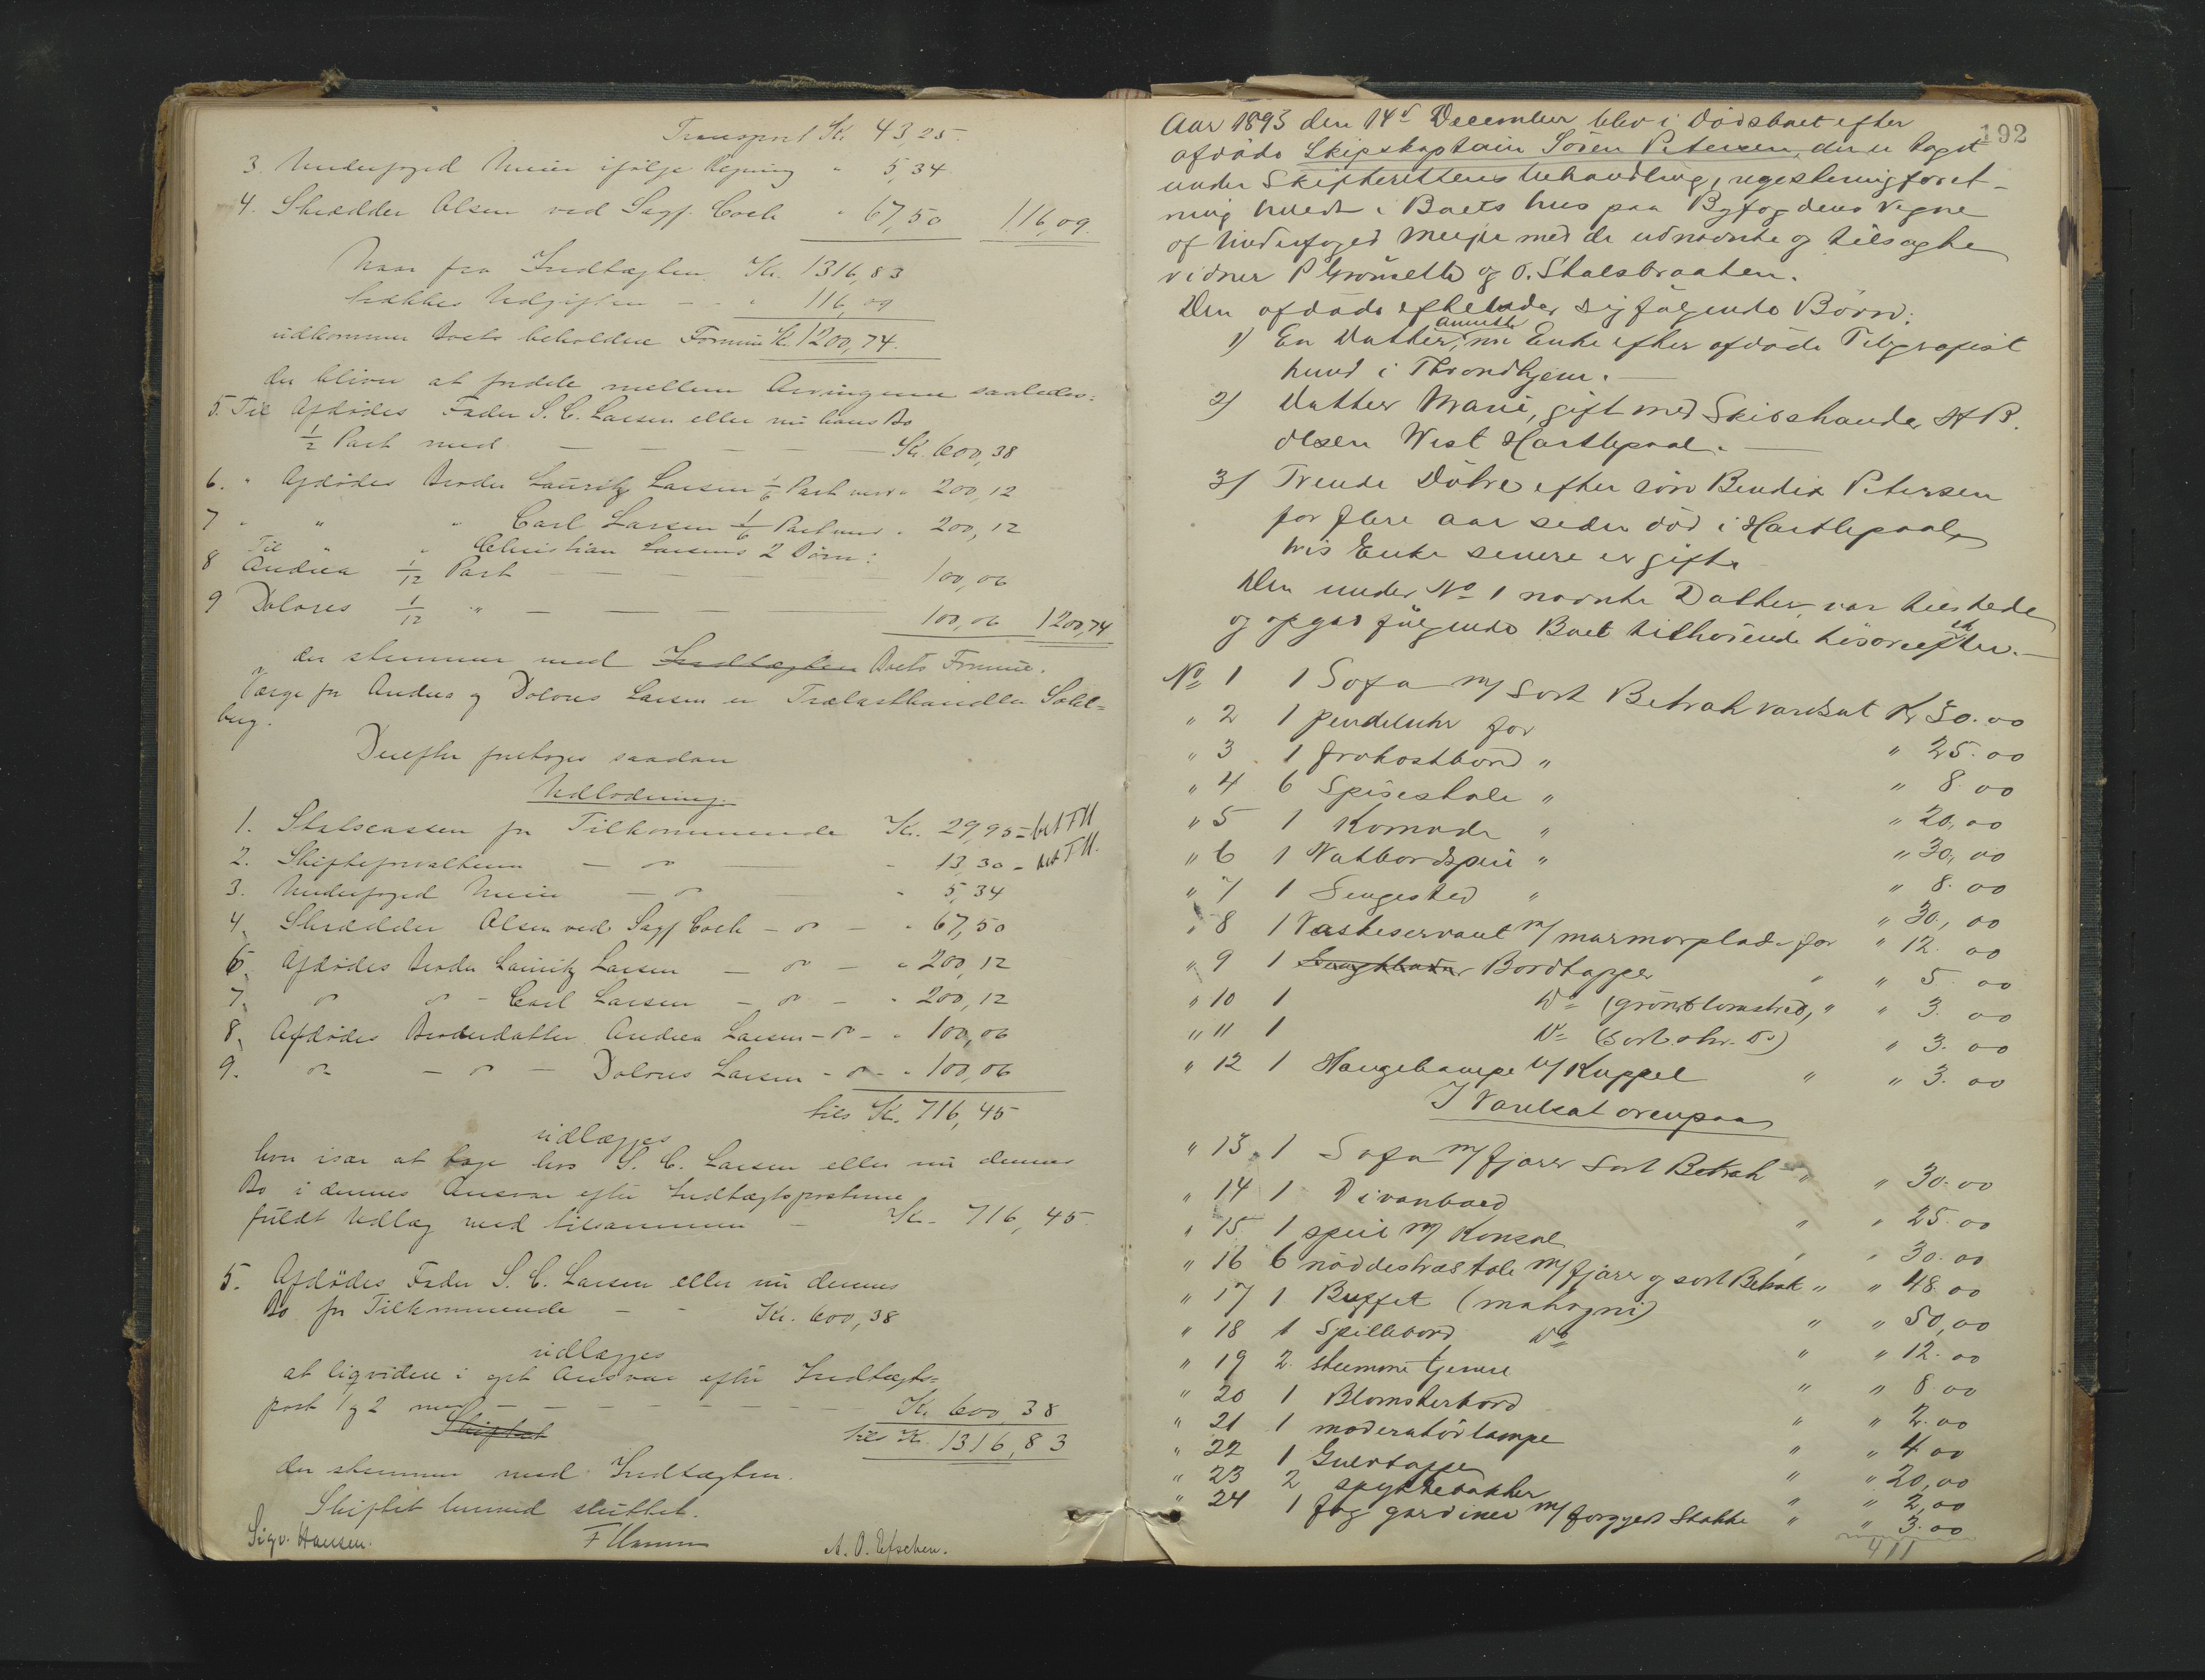 Transport Kr. 43,25.
3. Underfoged Meier ifølge Regning " 5,34
4. Skrædder Olsen ved Sagf. Coch " 67,50 116,09.
Naar fra Indtægten Kr. 1316,83
trækkes Udgiften - - " 116,09
udkommer Boets beholdne Formue Kr. 1200,74.
der bliver at fordele mellem Arvingerne saaledes:
5. Til Afdødes Fader S. C. Larsen eller nu hans Bo
1/2 Part med - - - - Kr. 600,38
6. " Afdødes Broder Lauritz Larsen 1/6 Part med " 200,12
7 " " " Carl Larsen 1/6 Part med " 200,12
Til " " Christian Larsens 2 Børn:
8 Andrea 1/12 Part - - - - 100,06
9 Dolores 1/12 " - - - - 100,06 1200,74
der stemmer med Indtægten Boets Formue.
Værge for Andrea og Dolores Larsen er Trælasthandler Sahl=
berg.
Derefter foretoges saadan
Udlodning.
1. Statscassen for Tilkommende Kr. 29,95 - bet FH
2. Skifteforvalteren - do - " 13,30 - bet FH.
3. Underfoged Meier - do - " 5,34
4. Skrædder Olsen ved Sagf Coch - do - " 67,50
6. Afdødes Broder Lauritz Larsen - do - " 200,12
7. do do - Carl Larsen - do - " 200,12
8. Afdødes Broderdatter Andrea Larsen - do - " 100,06
9. do - do - Dolores Larsen - do - " 100,06
tils Kr. 716,45
udlægges
hver især at tage hos S. C. Larsen eller nu dennes
Bo i dennes Ansvar efter Indtægtsposterne
fuldt Udlæg med tilsammen - Kr. 716,45.
5. Afdødes Fader S. C. Larsen eller nu dennes
Bo for Tilkommende - - Kr. 600,38
udlægges
at liqvidere i eget Ansvar efter Indtægts=
post 1 og 2 med - - - - Kr. 600,38
Skiftet tils Kr. 1316,83
der stemmer med Indtægten.
Skiftet hermed sluttet.
Sigv. Hansen. A. O. Efschen.
192
Aar 1893 den 14d December blev i Dødsboet efter
afdøde Skipskaptain Sören Petersen, der er taget
under Skifterettens behandling, regestering foret-
ning holdt i Boets hus paa Byfogdens Vegne
af Underfoged Meyer med de udnævnte og tilsagte
vidner P Grönseth og O. Stalsbraaten.
Den afdøde efterlader sig fölgende Börn:
1) En Datter, Annette nu Enke efter afdöde Telegrafist
Lund i Throndhjem. -
2) Datter Marie, gift med Skibshandler H B.
Olsen West Hartlepool. -
3) Trende Döttre efter sön Bendix Petersen
for flere aar siden död i Hartlepool,
hvis Enke senere er gift.
Den under No 1 nævnte Datter var tilstede
og opgav fölgende Boet tilhörende Lösöreefter. -
No 1 1 Sofa m/ sort Betræk værdsat Kr 30.00
" 2 1 pendeluhr for " 25.00
" 3 1 frokostbord " " 8.00
" 4 6 Spisestole " " 20,00
" 5 1 Komode " " 30,00
" 6 1 Natbordspeil " " 8.00
" 7 1 Sengested " " 30,00
" 8 1 Vaskeservant m/ marmorplade for " 12.00
" 9 1 Bordtæppe " " 5.00
" 10 1 Do (grönblomstred, " " 3.00
" 11 1 Do (Sort ohr. Do) " 3.00
" 12 1 Hængelampe m/ Kuppel " " 3.00
I Værelset ovenpaa
" 13 1 Sofa m/ fjærer sort Betræk " " 30.00
" 14 1 Divanbord " " 25.00
" 15 1 speil m/ Konsol " " 30.00
" 16 6 nöddestræstole m/ fjærer og sort Betræk " " 48.00
" 17 1 Buffet (mahogni) " " 50,00
" 18 1 Spillebord Do " " 12.00
" 19 2 stumme tjenere " " 8.00
" 20 1 Blomsterbord " " 2.00
" 21 1 moderatörlampe " " 4.00
" 22 1 Gulvtæppe " " 20,00
" 23 2 spyttebakker " " 2,00
" 24 1 fag gardiner m/ forgyldt Stokke " " 3.00
411